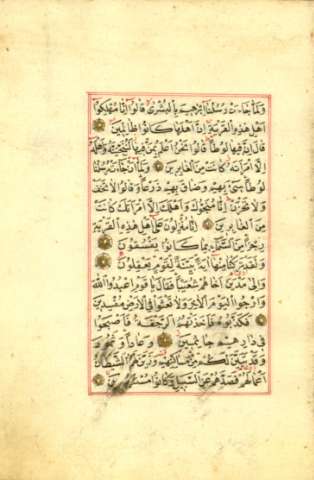 وَلَمَّا جَاءَتْ رُسُلُنَا إِبْرٰهِيمَ بِالْبُشْرَى قَالُوا إِنَّا مُهْلِكُوا
أَهْلِ هٰذِهِ الْقَرْيَةِ إِنَّ أَهْلَهَا كَانُوا ظَالِمِينَ
قَالَ إِنَّ فِيهَا لُوطًا قَالُوا نَحْنُ أَعْلَمُ بِمَنْ فِيهَا لَنُنَجِّيَنَّهُ وَأَهْلَهُ
إِلَّا امْرَأَتَهُ كَانَتْ مِنَ الْغَابِرِينَ وَلَمَّا أَنْ جَاءَتْ رُسُلُنَا
لُوطًا سِيءَ بِهِمْ وَضَاقَ بِهِمْ ذَرْعًا وَقَالُوا لَا تَخَفْ
وَلَا تَحْزَنْ إِنَّا مُنَجُّوكَ وَأَهْلَكَ إِلَّا امْرَأَتَكَ كَانَتْ
مِنَ الْغَابِرِينَ إِنَّا مُنْزِلُونَ عَلَى أَهْلِ هٰذِهِ الْقَرْيَةِ
رِجْزًا مِنَ السَّمَاءِ بِمَا كَانُوا يَفْسُقُونَ
وَلَقَدْ تَرَكْنَا مِنْهَا آيَةً بَيِّنَةً لِقَوْمٍ يَعْقِلُونَ
وَإِلَى مَدْيَنَ أَخَاهُمْ شُعَيْبًا فَقَالَ يَا قَوْمِ اعْبُدُوا اللّٰهَ
وَارْجُوا الْيَوْمَ الْآخِرَ وَلَا تَعْثَوْا فِي الْأَرْضِ مُفْسِدِينَ
فَكَذَّبُوهُ فَأَخَذَتْهُمُ الرَّجْفَةُ فَأَصْبَحُوا
فِي دَارِهِمْ جَاثِمِينَ وَعَادًا وَثَمُودَ
وَقَدْ تَبَيَّنَ لَكُمْ مِنْ مَسَاكِنِهِمْ وَزَيَّنَ لَهُمُ الشَّيْطَانُ
أَعْمَالَهُمْ فَصَدَّهُمْ عَنِ السَّبِيلِ وَكَانُوا مُسْتَبْصِرِينَ